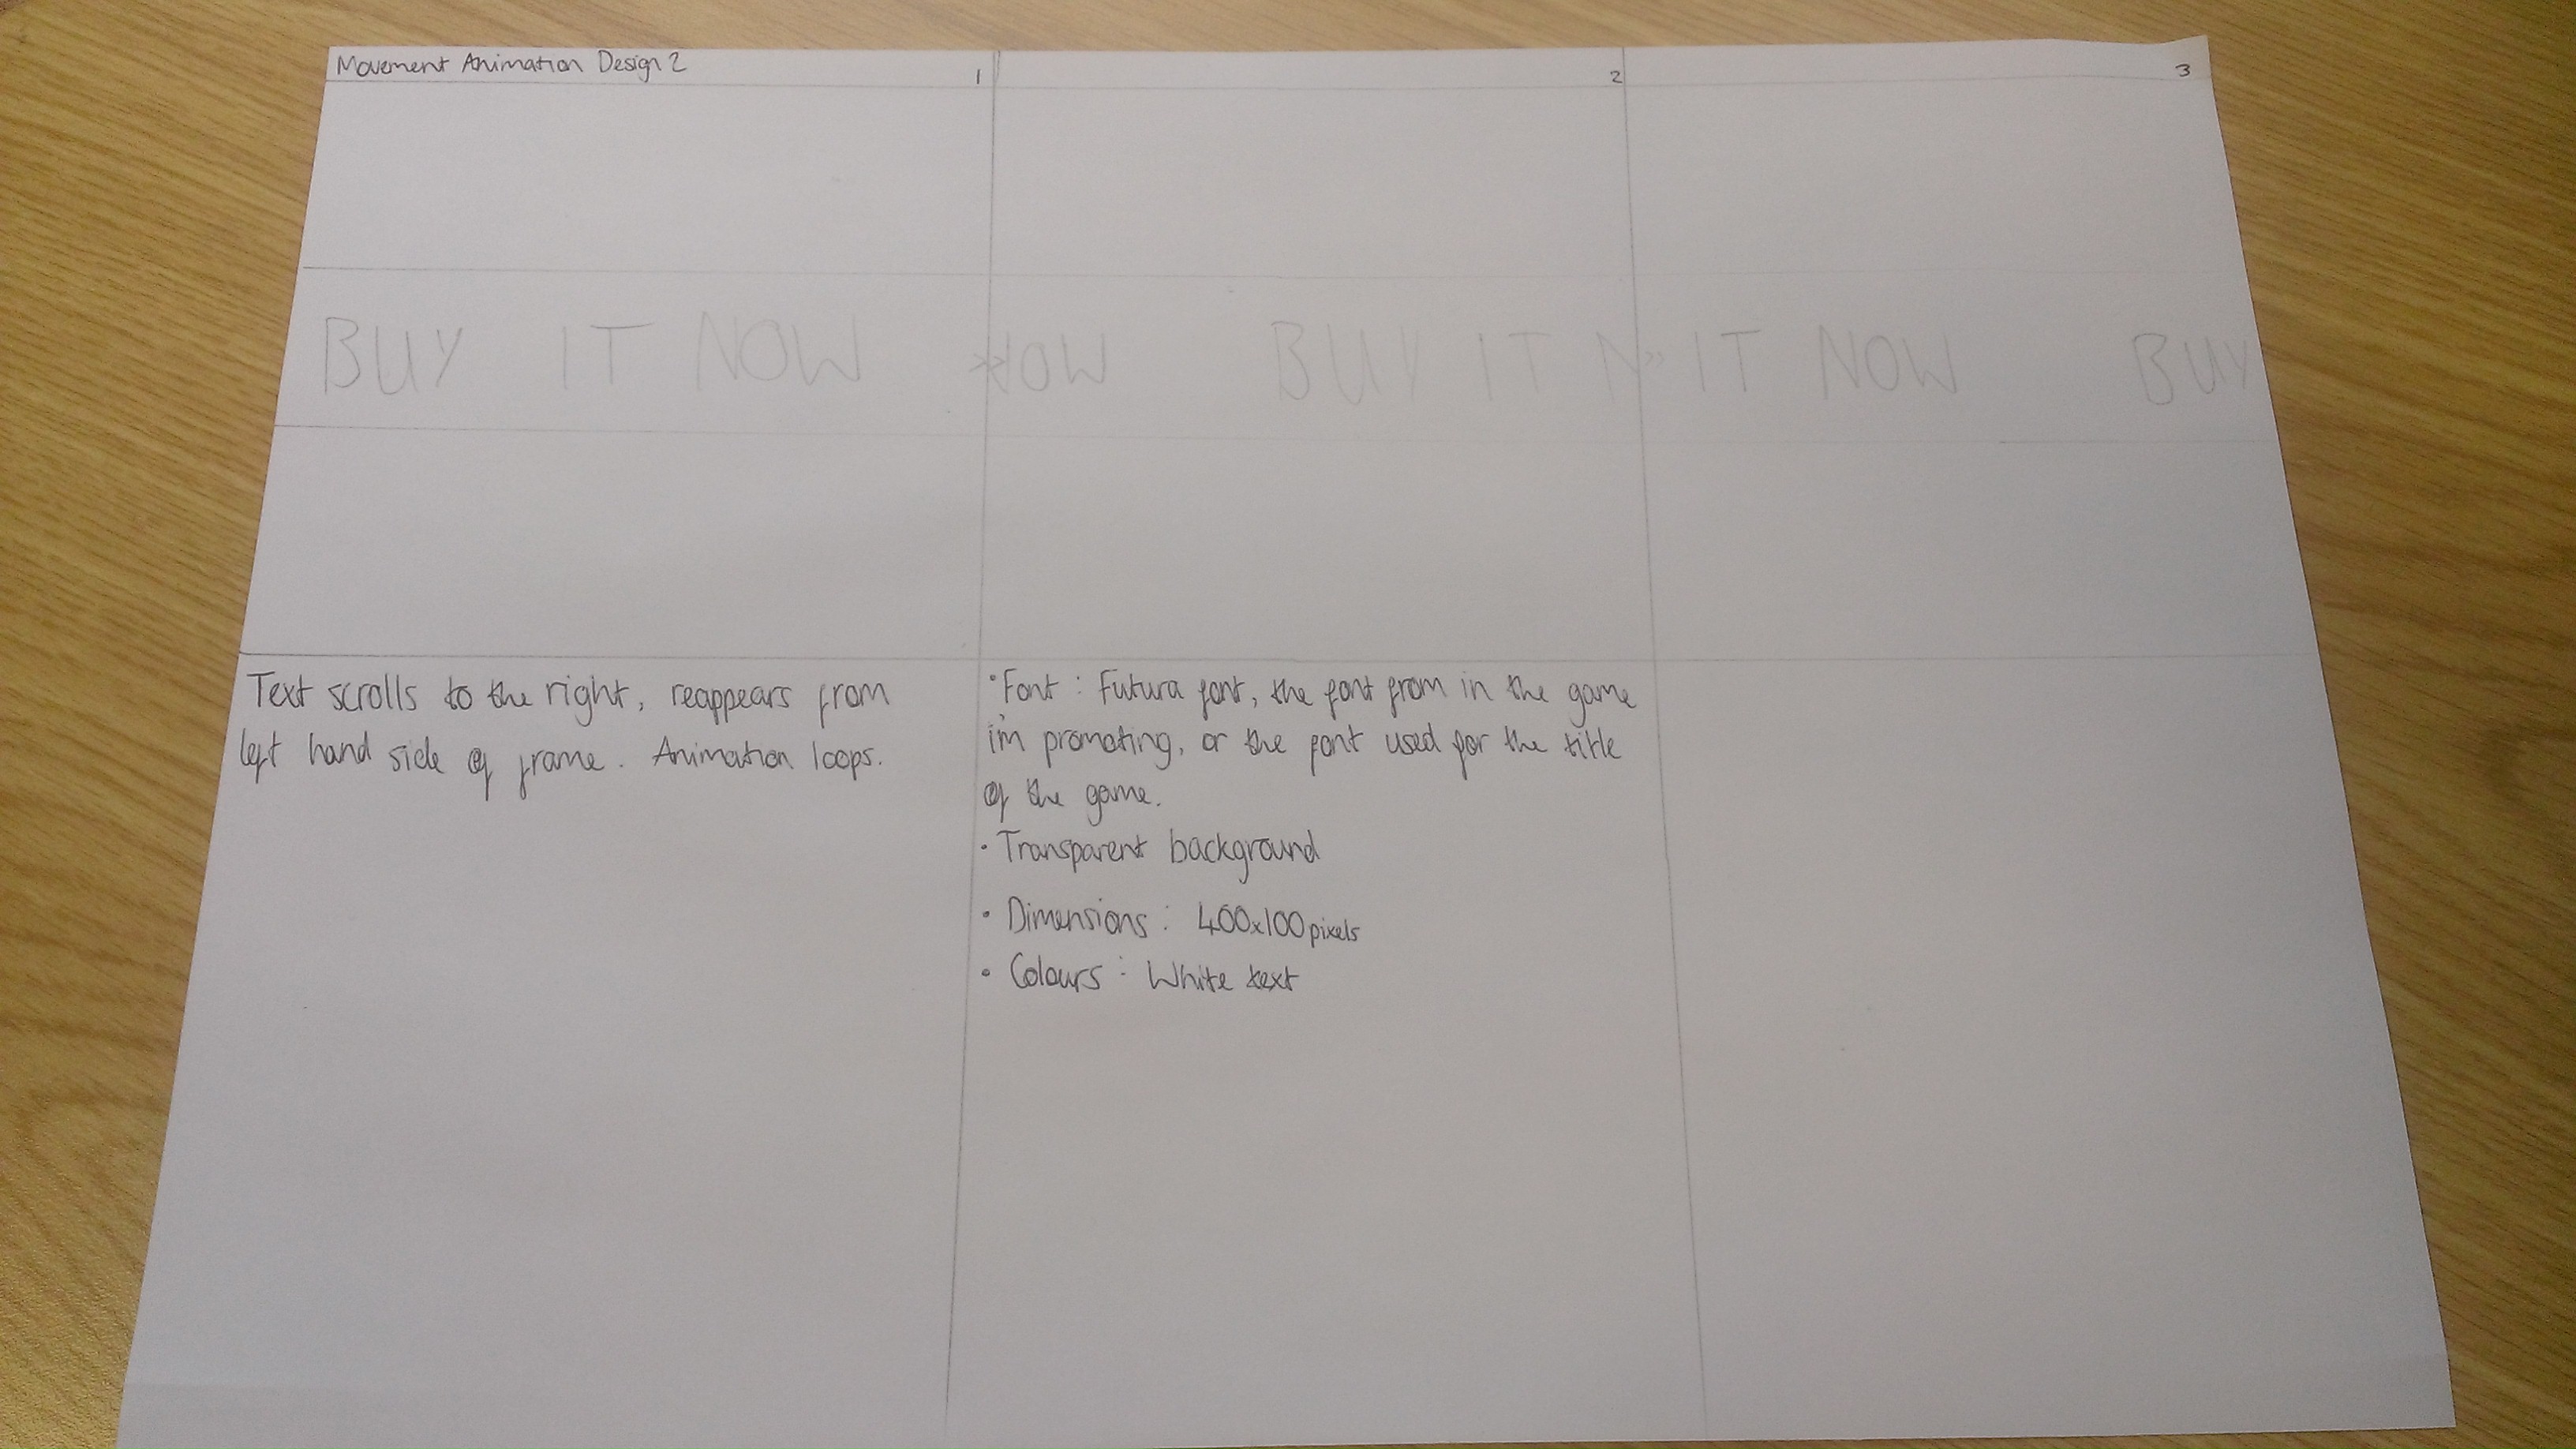 Movement Animation Design 2
1
2
3
BUY IT NOW
»
OW BUY IT N
»
IT NOW BUY
Text scrolls to the right, reappears from
left hand side of frame. Animation loops.
• Font : Futura font, the font from in the game
i'm promoting, or the font used for the title
of the game.
• Transparent background
• Dimensions : 400x100 pixels
• Colours : White text